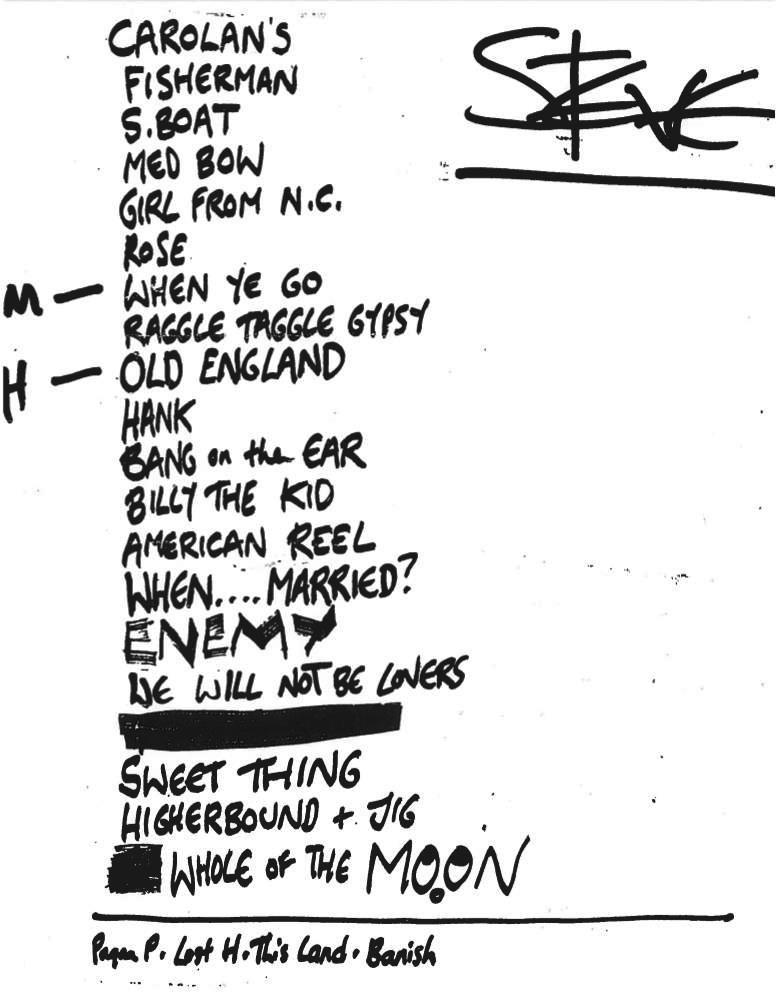 STEVE
CAROLAN'S
FISHERMAN
S.BOAT
MED BOW
GIRL FROM N.C.
ROSE
M — WHEN YE GO
RAGGLE TAGGLE GYPSY
H — OLD ENGLAND
HANK
BANG on the EAR
BILLY THE KID
AMERICAN REEL
WHEN.... MARRIED?
ENEMY
WE WILL NOT BE LOVERS
SWEET THING
HIGHERBOUND + JIG
WHOLE OF THE MOON
Pagan P. Lost H. This Land. Banish